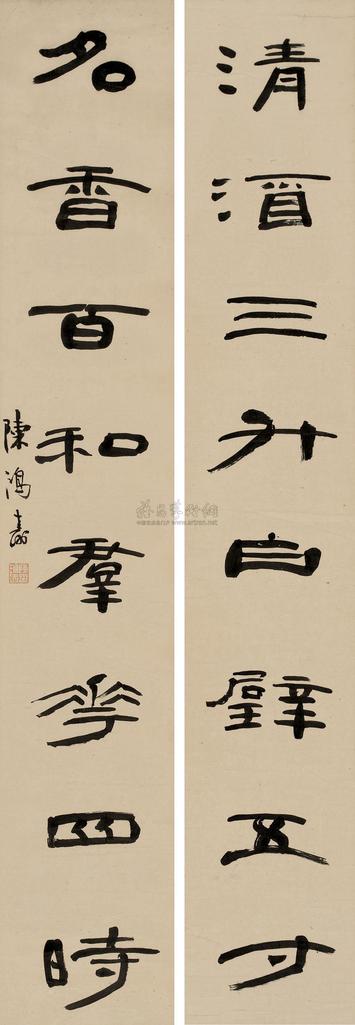 清酒三升白璧五寸
名香百和羣花四時
陳鴻壽